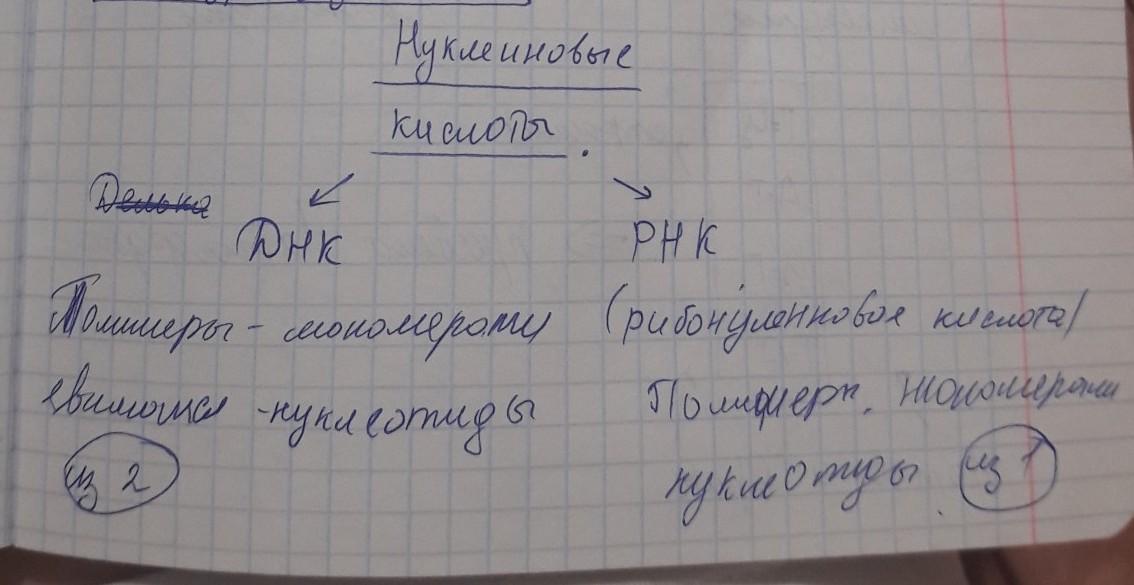 Нуклеиновые
кислоты.
ДНК
РНК
Полимеры - мономероми
евимотся - нуклеотиды
из 2
(рибонуленновоя кислота)
Полимерн. мономерами
нуклеотиды.
из 1